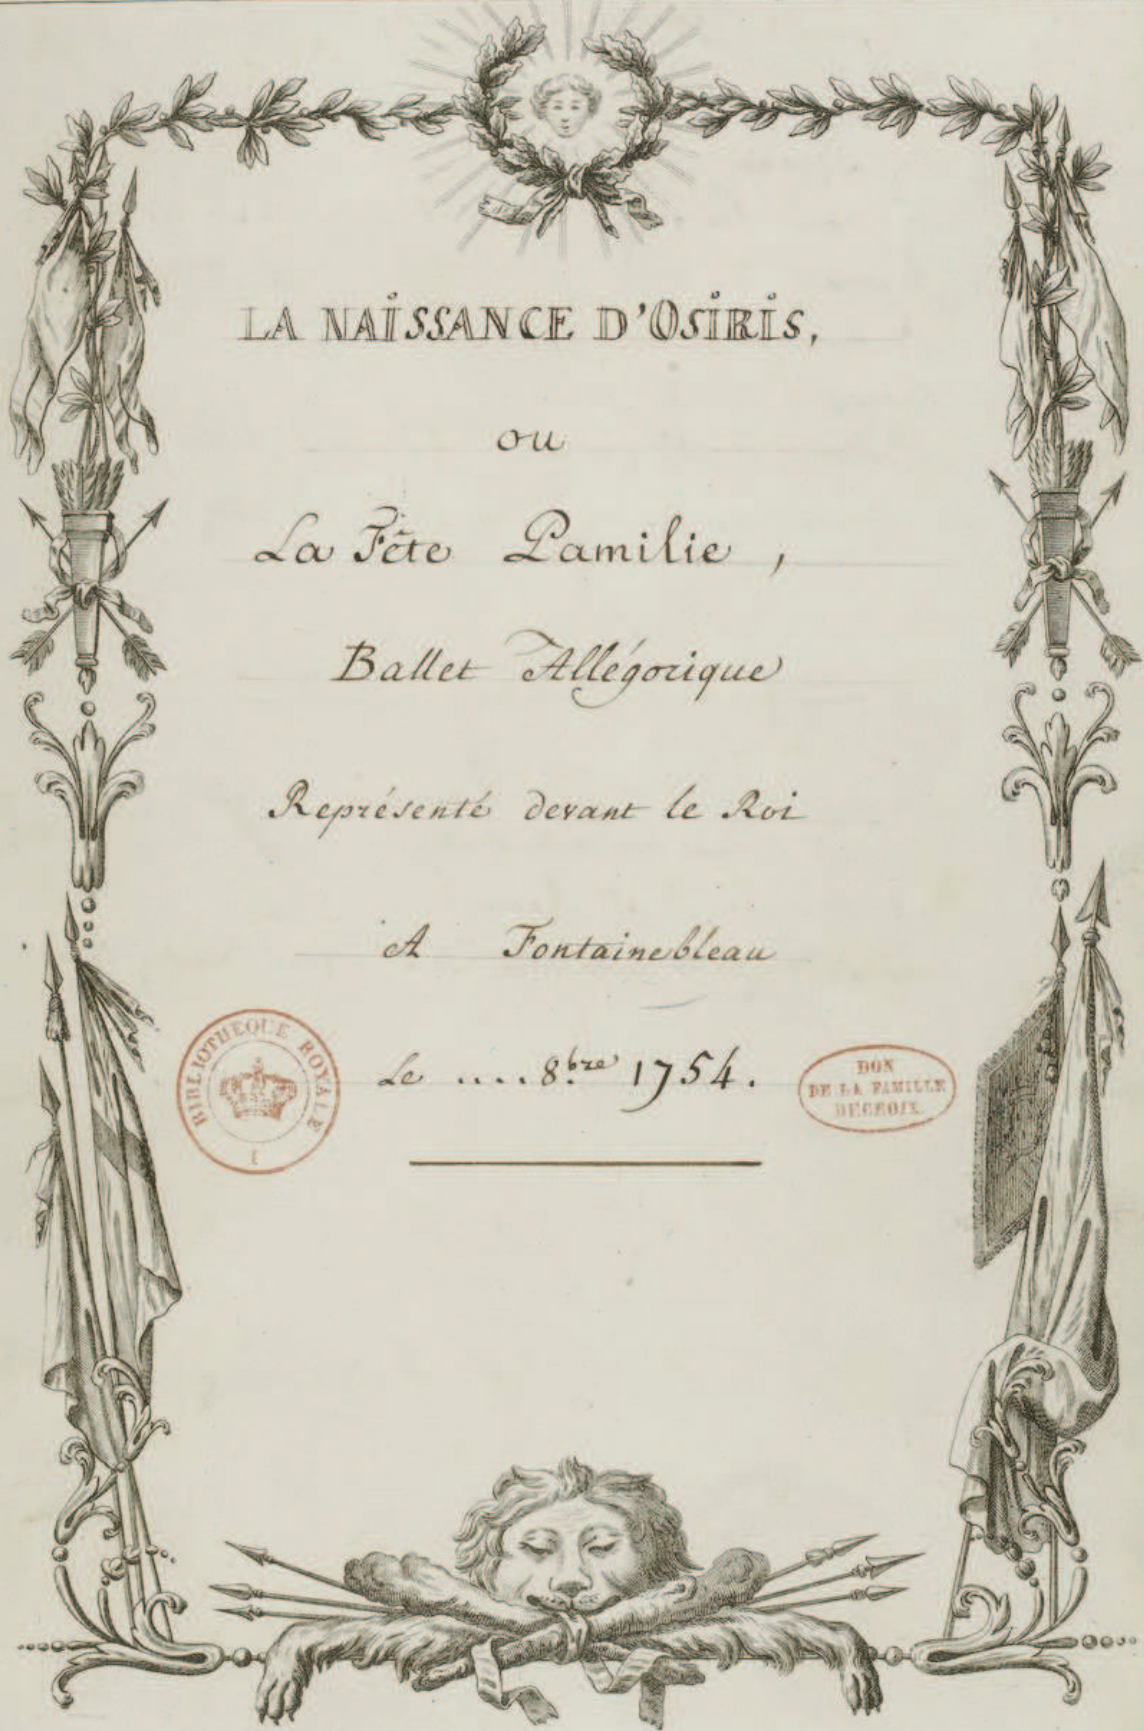 LA NAISSANCE D'OSIRIS,
ou
La Fête Pamilie,
Ballet Allégorique
Représenté devant le Roi
A Fontainebleau
Le .... 8.bre 1754.
BIBLIOTHEQUE ROYALE
I
DON
DE LA FAMILLE
DECROIX